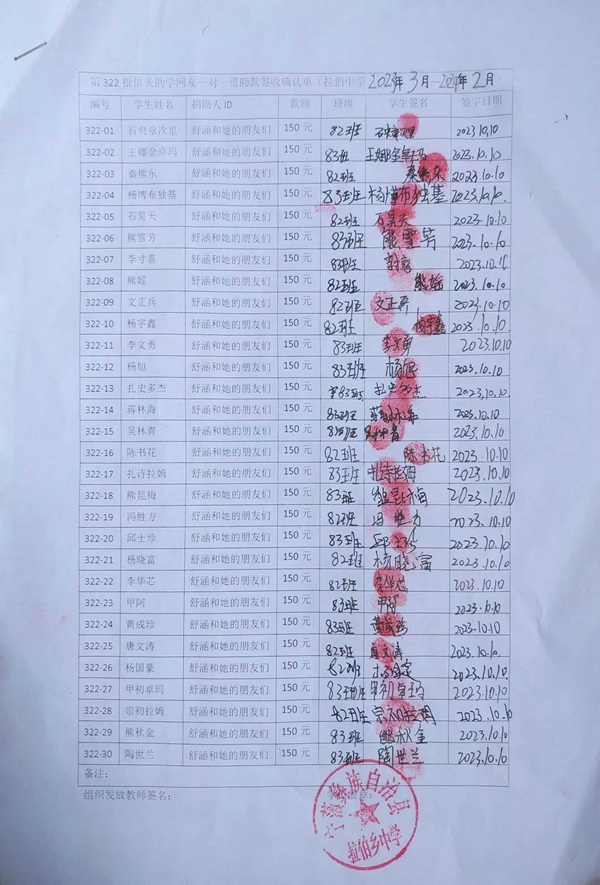 第322批信天助学网友一对一资助款签收确认单（拉伯中学 2023年3月—2024年2月
编号 学生姓名 捐助人ID 款额 班级 学生签名 签字日期
322-01 石央章次里 舒涵和她的朋友们 150元 82班 2023.10.10
322-02 王娜金卓玛 舒涵和她的朋友们 150元 83班 王娜金卓玛 2023.10.10
322-03 秦熊东 舒涵和她的朋友们 150元 82班 秦熊东 2023.10.10
322-04 杨博布独基 舒涵和她的朋友们 150元 83班 杨博布独基 2023.10.10
322-05 石昊天 舒涵和她的朋友们 150元 82班 石昊天 2023.10.10
322-06 熊雪芳 舒涵和她的朋友们 150元 83班 熊雪芳 2023.10.10
322-07 李寸喜 舒涵和她的朋友们 150元 83班 2023.10.10
322-08 熊嫄 舒涵和她的朋友们 150元 82班 2023.10.10
322-09 文正兵 舒涵和她的朋友们 150元 82班 文正兵 2023.10.10
322-10 杨宇鑫 舒涵和她的朋友们 150元 82班 杨宇鑫 2023.10.10
322-11 李文勇 舒涵和她的朋友们 150元 83班 李文勇 2023.10.10
322-12 杨旭 舒涵和她的朋友们 150元 83班 杨旭 2023.10.10
322-13 扎史多杰 舒涵和她的朋友们 150元 83班 扎史多杰 2023.10.10
322-14 蒋林海 舒涵和她的朋友们 150元 83班 蒋林海 2023.10.10
322-15 吴林青 舒涵和她的朋友们 150元 82班 吴林青 2023.10.10
322-16 陈书花 舒涵和她的朋友们 150元 82班 陈书花 2023.10.10
322-17 扎诗拉姆 舒涵和她的朋友们 150元 83班 扎诗拉姆 2023.10.10
322-18 熊昆梅 舒涵和她的朋友们 150元 83班 熊昆梅 2023.10.10
322-19 冯胜方 舒涵和她的朋友们 150元 82班 冯胜方 2023.10.10
322-20 邱士珍 舒涵和她的朋友们 150元 83班 邱士珍 2023.10.10
322-21 杨晓富 舒涵和她的朋友们 150元 82班 杨晓富 2023.10.10
322-22 李华芯 舒涵和她的朋友们 150元 82班 李华芯 2023.10.10
322-23 甲阿 舒涵和她的朋友们 150元 83班 甲阿 2023.10.10
322-24 黄成珍 舒涵和她的朋友们 150元 83班 黄成珍 2023.10.10
322-25 唐文涛 舒涵和她的朋友们 150元 82班 唐文涛 2023.10.10
322-26 杨国豪 舒涵和她的朋友们 150元 82班 2023.10.10
322-27 甲初卓玛 舒涵和她的朋友们 150元 83班 甲初卓玛 2023.10.10
322-28 宗初拉姆 舒涵和她的朋友们 150元 82班 宗初拉姆 2023.10.10
322-29 熊秋金 舒涵和她的朋友们 150元 83班 熊秋金 2023.10.10
322-30 陶世兰 舒涵和她的朋友们 150元 83班 陶世兰 2023.10.10
备注：
组织发放教师签名：
宁蒗彝族自治县
拉伯乡中学